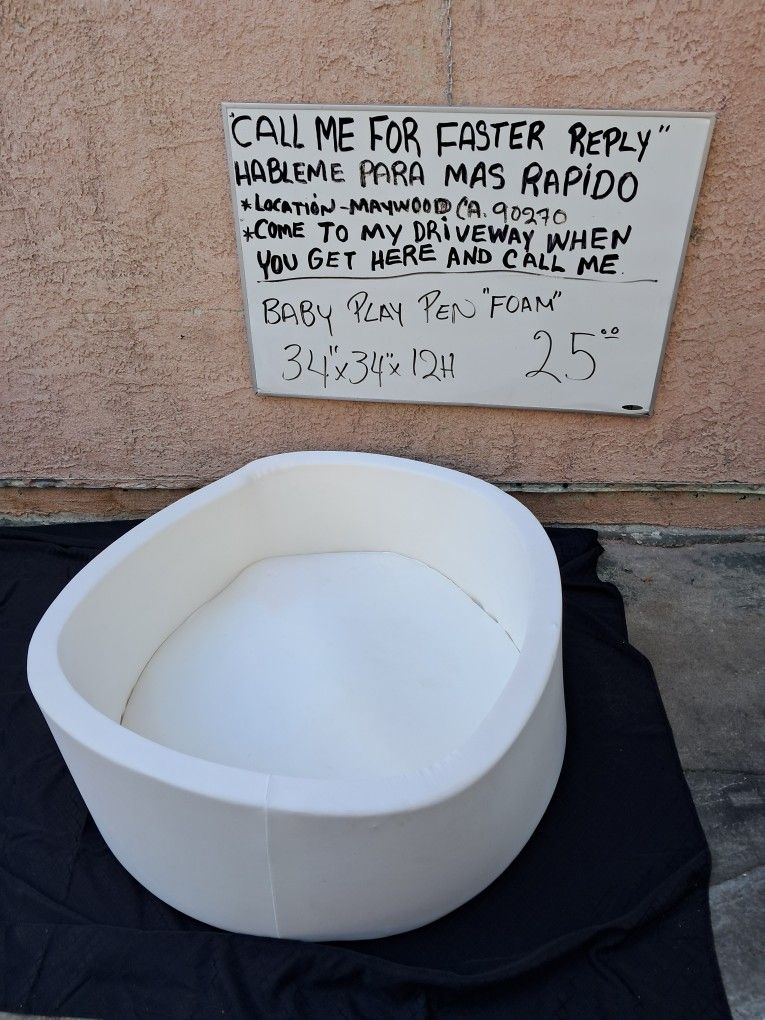 "CALL ME FOR FASTER REPLY"
HABLEME PARA MAS RAPIDO
*LOCATIÓN-MAYWOOD CA. 90270
*COME TO MY DRIVEWAY WHEN
YOU GET HERE AND CALL ME.
BABY PLAY PEN "FOAM"
34"x34"x 12H 25⁰⁰